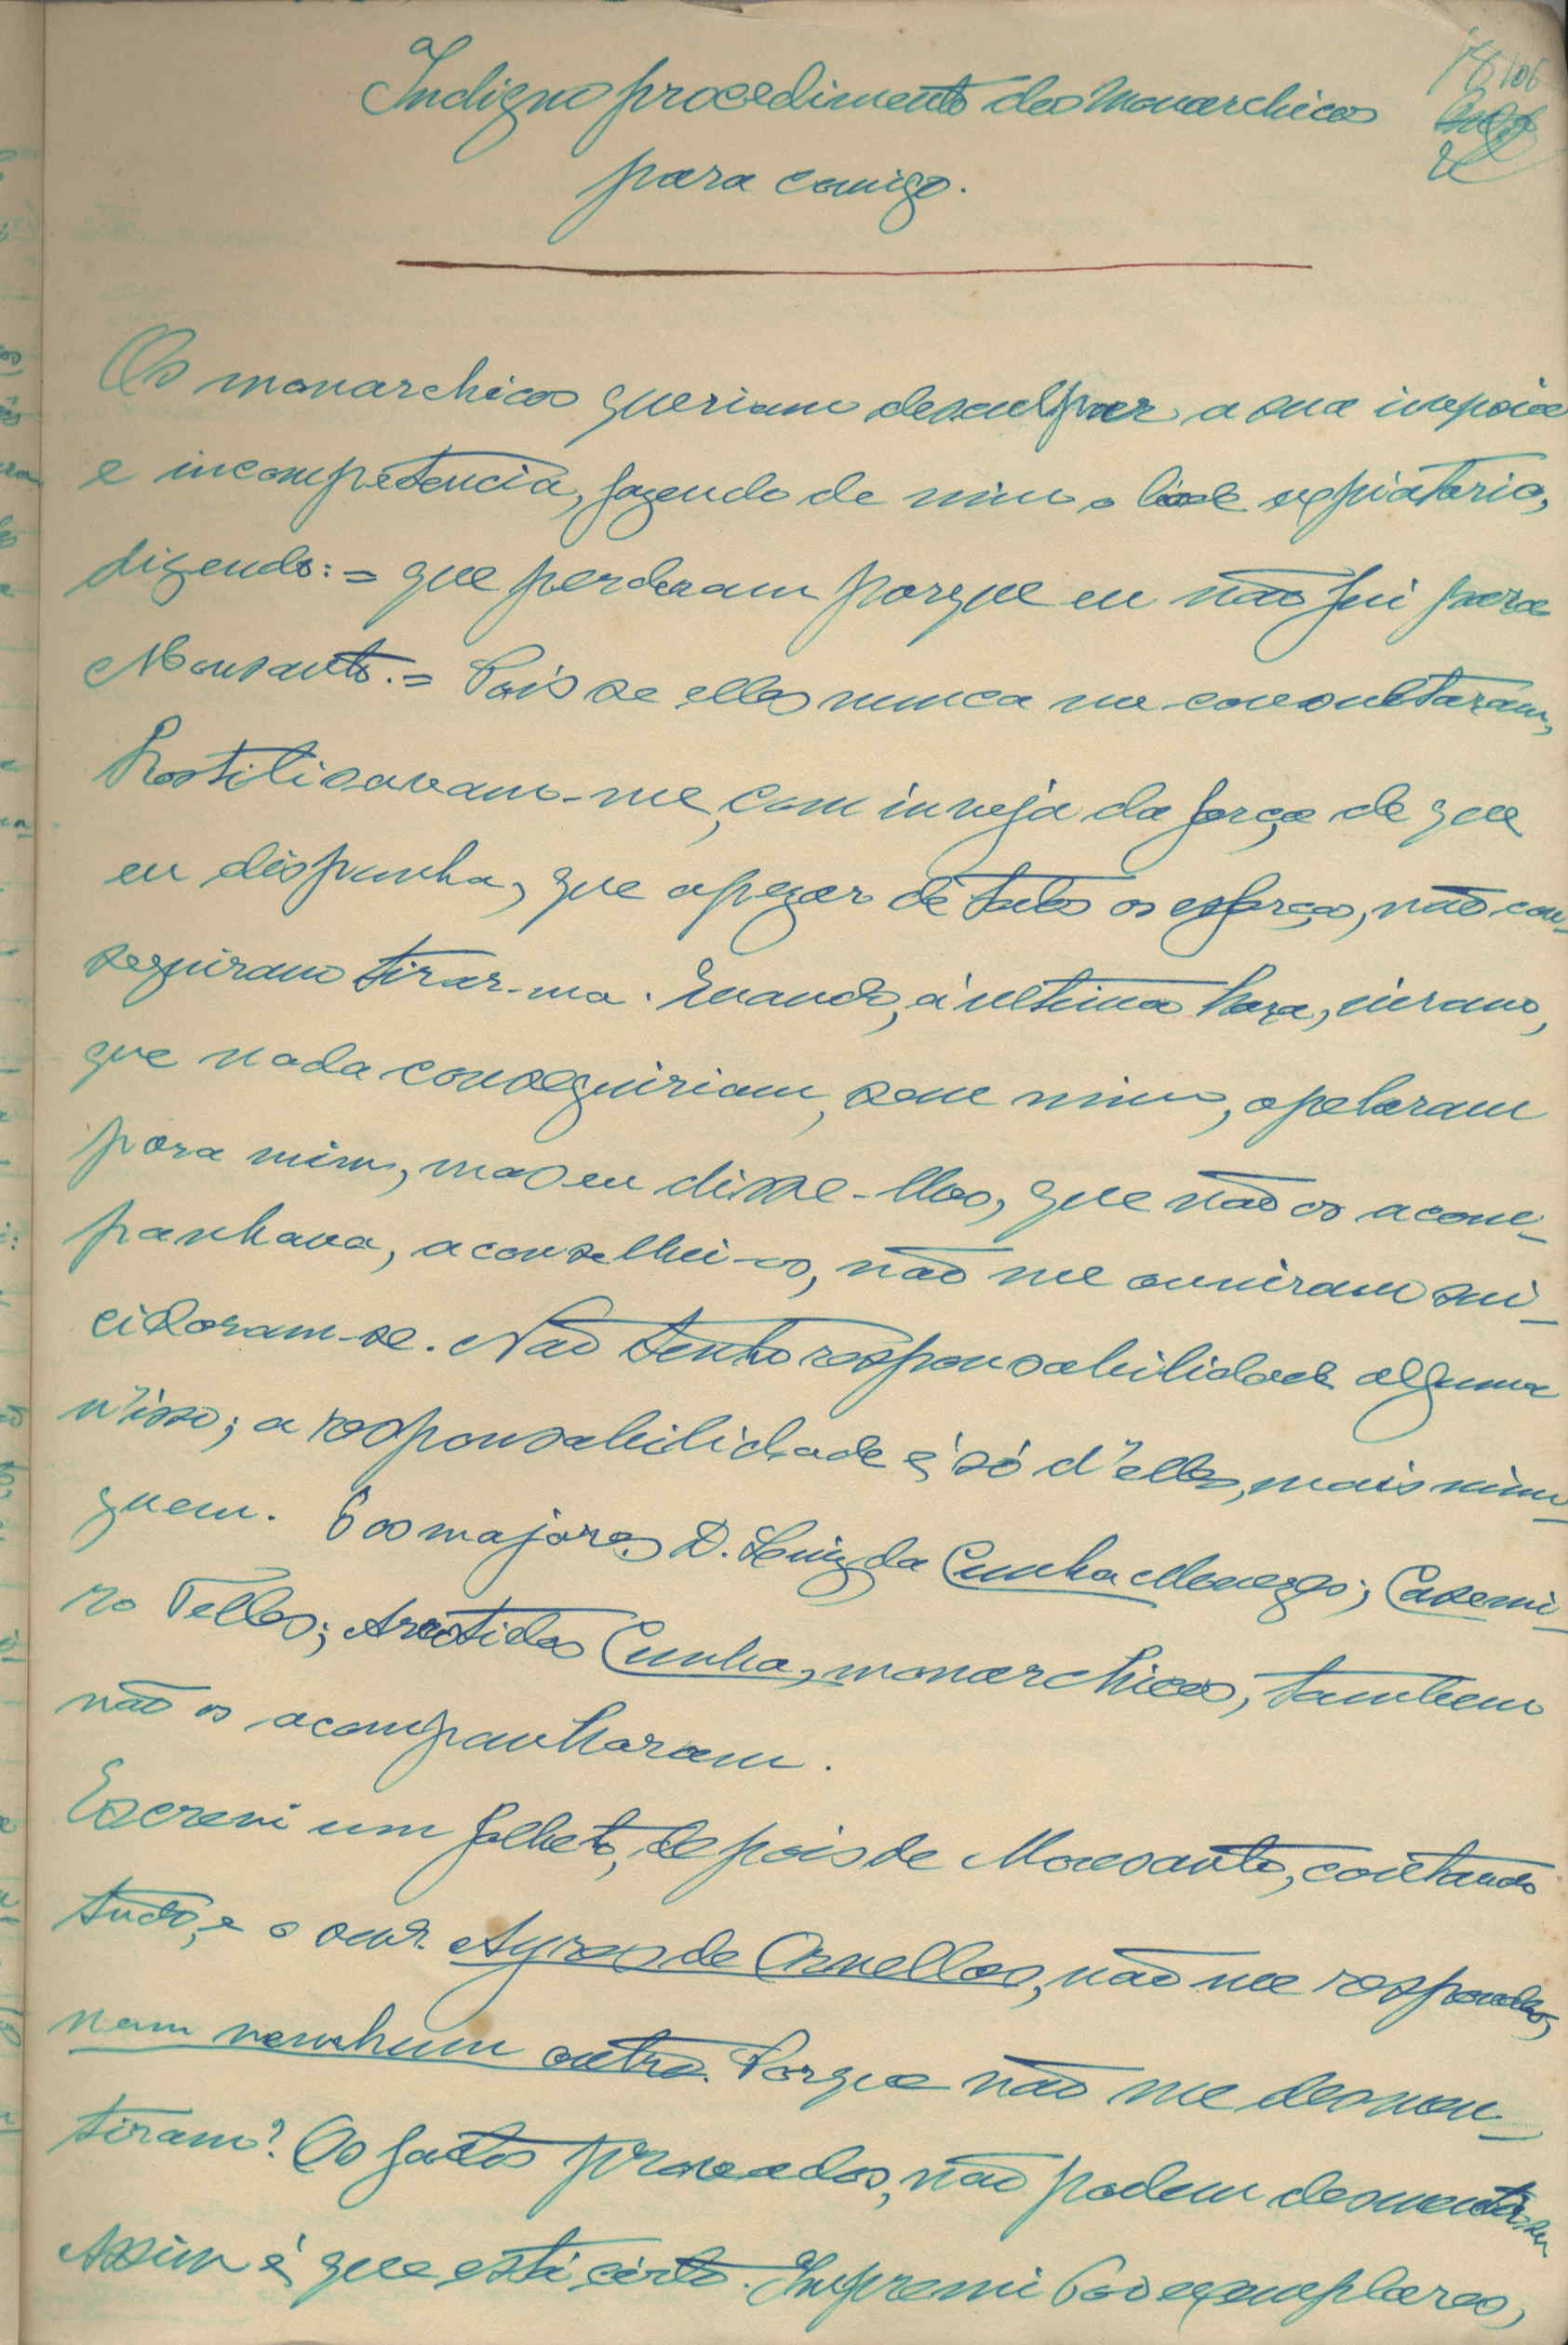 Indigno procedimento dos monarchicos
para comigo.
Os monarchicos queriam desculpar a sua
e incompetencia, fazendo de mim o bode expiatorio,
dizendo: = que perderam porque eu não fui para
Monsanto. = Pois se elles nunca me consultaram,
hostilisavam-me, com inveja da força de que
eu dispunha, que apezar de todos os esforços, não con-
seguiram tirar-ma. Quando, á ultima hora, viram,
que nada conseguiriam, sem mim, apelaram
para mim, mas eu disse-lhes, que não os acom-
panhava, aconselhei-os, não me ouviram sui-
cidaram-se. Não tenho responsabilidade alguma
n'isso; a responsabilidade é só d'elles, mais nin-
guem. E os majores D. Luiz da Cunha Menezes; Casemi-
ro Telles; Aristides Cunha, monarchicos, tambem
não os acompanharam.
Escrevi um folheto, depois de Monsanto, contando
tudo, e o snr. Ayres de Ornellas, não me respondeu,
nem nenhum outro. Porque não me desmen-
tiram? Os factos provados, não podem desmentir-se
Assim é que está certo. Imprimi 600 exemplares,